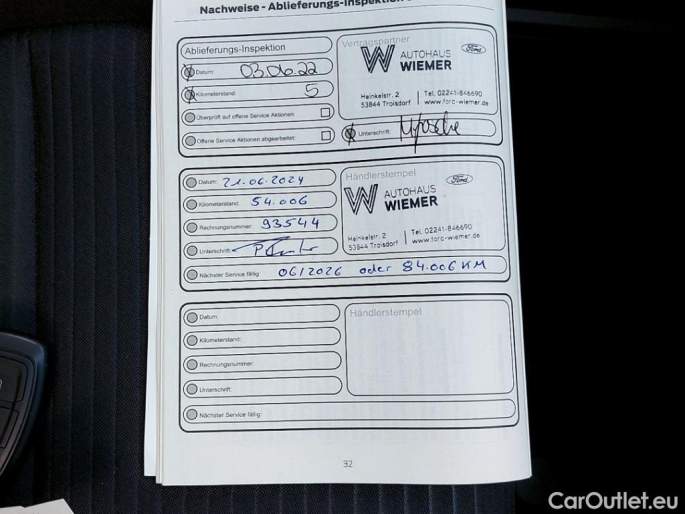 Nachweise - Ablieferungs-Inspektion
Ablieferungs-Inspektion
Datum: 03.06.22
Kilometerstand: 5
Überprüft auf offene Service Aktionen:
Offene Service Aktionen abgearbeitet:
Vertragspartner
Ford
W AUTOHAUS
WIEMER
Hainkelstr. 2
53844 Troisdorf
Tel. 02241-846690
www.ford-wiemer.de
Unterschrift:
Datum: 21.06.2024
Kilometerstand: 54.006
Rechnungsnummer: 93544
Unterschrift:
Händlerstempel
Ford
W AUTOHAUS
WIEMER
Heinkelstr. 2
53844 Troisdorf
Tel. 02241-846690
www.ford-wiemer.de
Nächster Service fällig: 06/2026 oder 84.006 KM
Datum:
Kilometerstand:
Rechnungsnummer:
Unterschrift:
Händlerstempel
Nächster Service fällig:
32
CarOutlet.eu